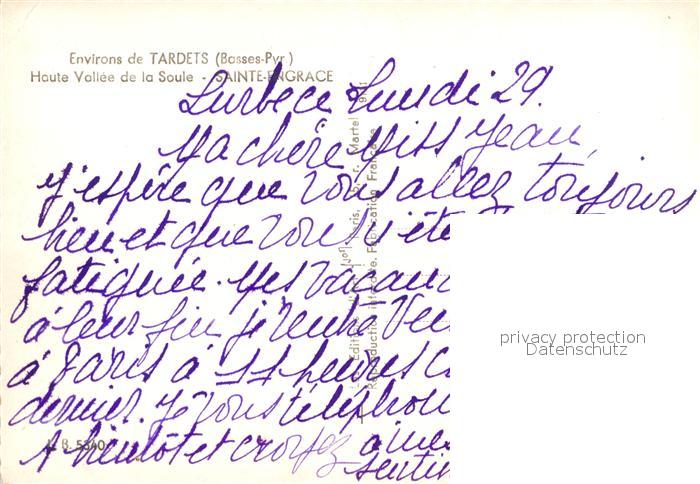 Environs de TARDETS (Basses-Pyr.)
Haute Vallée de la Soule - SAINTE-ENGRACE
Lurbe ce Lundi 29.
Ma chère Miss Jean,
J'espère que vous allez toujours
bien et que vous n'ête
fatiguée. Mes vacanc
à leur fin je rentre Ven
à Paris à 11 heures
dernier. Je vous téléphon
A bientôt et croyez à mes
sentim
privacy protection
Datenschutz
Reproduction interdite. Fabrication Française
5340